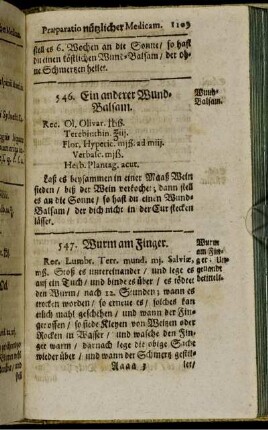 Præparatio nützlicher Medicam. 1109
stell es 6. Wochen an die Sonne / so hast
du einen köstlichen Wund-Balsam / der oh-
ne Schmertzen heilet.
546. Ein anderer Wund-
Balsam.
Wund-
Balsam.
Rec. Ol. Olivar.
Terebinthin.
Flor. Hyperic. mjß. ad miij.
Verbasc. mjß.
Herb. Plantag. acut.
Laß es beysammen in einer Maaß Wein
sieden / biß der Wein verkochet; dann stell
es an die Sonne / so hast du einen Wund-
Balsam / der dich nicht in der Cur stecken
lässet.
547. Wurm am Finger.
Wurm
am Fin-
ger
Rec. Lumbr. Terr. mund. mj. Salviæ,
mß. Stoß es untereinander / und lege es
auf ein Tuch / und binde es über / es tödtet
den Wurm / nach 12. Stunden; wann es
trocken worden / so erneue es / solches kan
etlich mahl geschehen / und wann der Fin-
ger offen / so siede Kleyen von Weitzen oder
Rocken in Wasser / und wasche den Fin-
ger warm / darnach lege die obige Sache
wieder über / und wann der Schmertz gestil-
Aaaa 3 let /